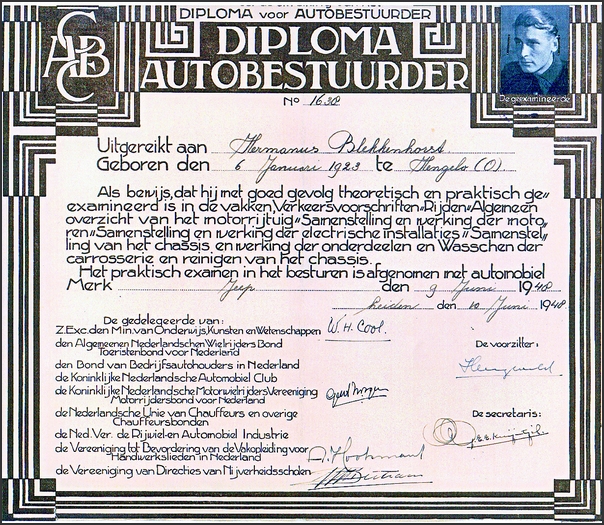 DIPLOMA voor AUTOBESTUURDER
CABC
DIPLOMA
AUTOBESTUURDER
De geexamineerde
No 1638
Uitgereikt aan Hermanus Blekkenhorst
Geboren den 6 Januari 1923 te Hengelo (O)
Als bewijs, dat hij met goed gevolg theoretisch en praktisch ge„
examineerd is in de vakken „Verkeersvoorschriften" „Rijden" „Algemeen
overzicht van het motorrijtuig" „Samenstelling en werking der moto„
ren" „Samenstelling en werking der electrische installaties" „Samenstel„
ling van het chassis en werking der onderdeelen en Wasschen der
carrosserie en reinigen van het chassis.
Het praktisch examen in het besturen is afgenomen met automobiel
Merk Jeep den 9 Juni 1948
Leiden den 10 Juni 1948.
De gedelegeerde van:
Z.Exc.den Min.van Onderwijs, Kunsten en Wetenschappen W. H. Cool.
den Algemeenen Nederlandschen Wielrijders Bond
Toeristenbond voor Nederland
De voorzitter:
den Bond van Bedrijfsautohouders in Nederland
de Koninklijke Nederlandsche Automobiel Club
de Koninklijke Nederlandsche Motorwielrijders Vereeniging
Motorrijdersbond voor Nederland
de Nederlandsche Unie van Chauffeurs en overige
Chauffeursbonden
De secretaris:
de Ned. Ver. de Rijwiel-en Automobiel Industrie
de Vereeniging tot Bevordering van de Vakopleiding voor
Handwerkslieden in Nederland
de Vereeniging van Directies van Nijverheidsscholen